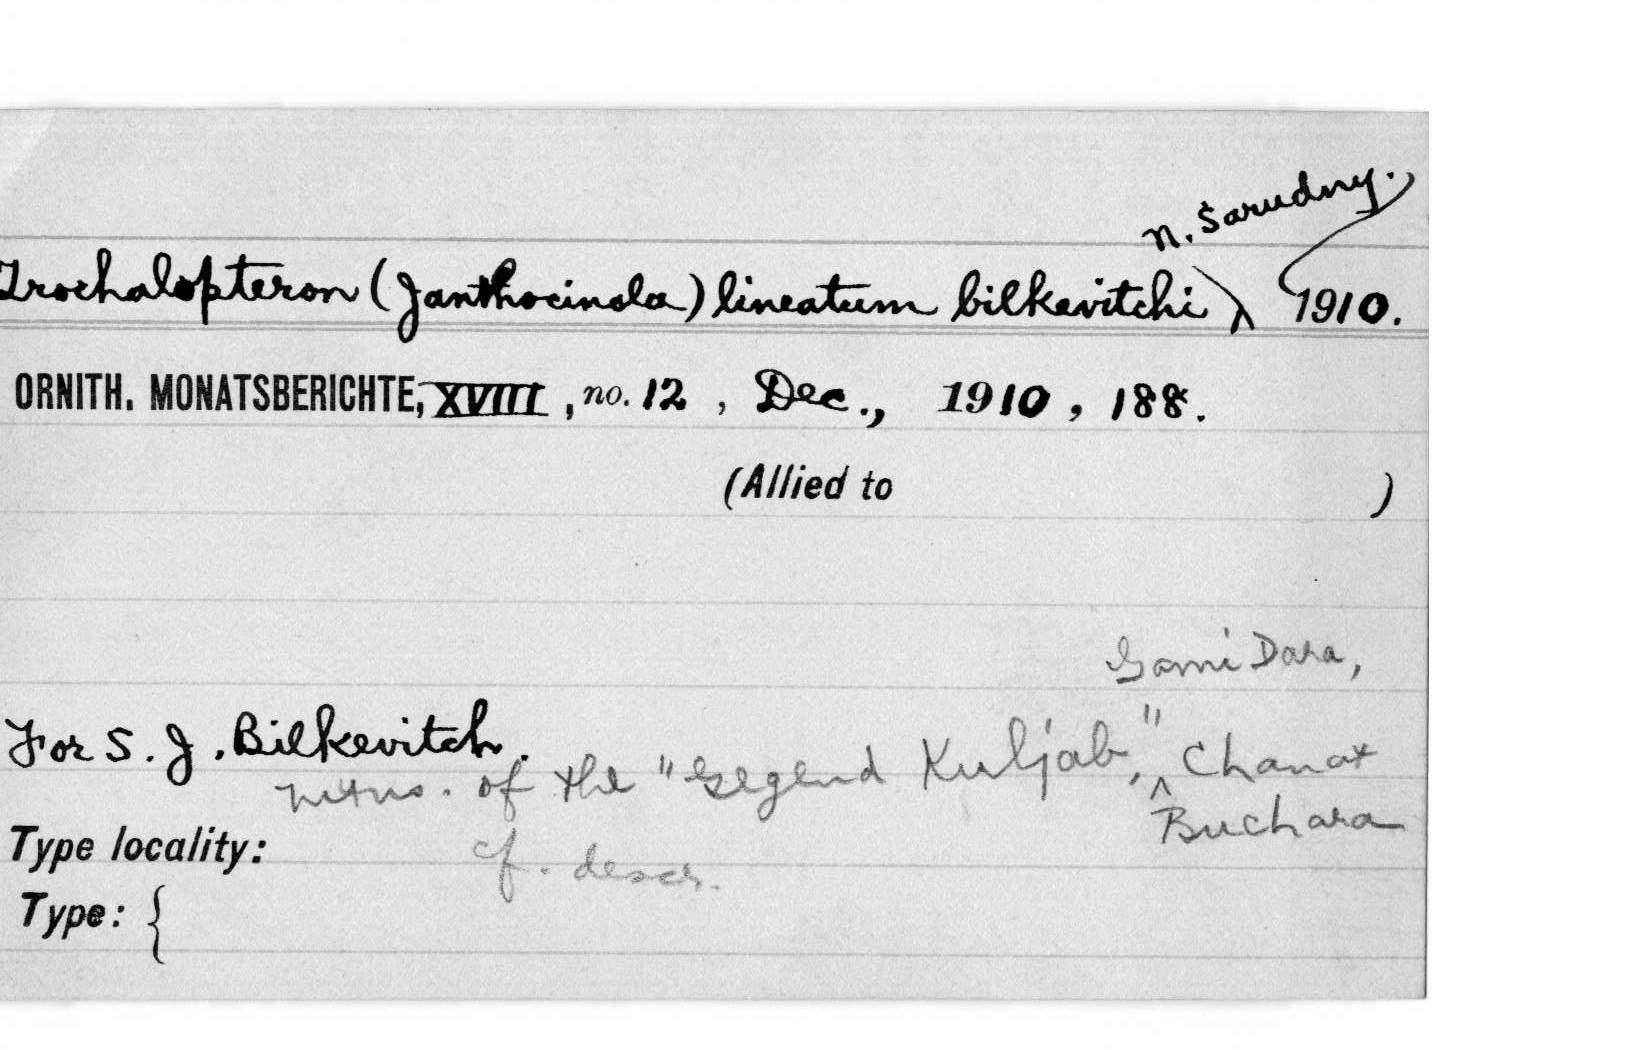 N. Sarudny.
Trochalopteron (Janthocincla) lineatum bilkevitchi 1910.
ORNITH. MONATSBERICHTE, XVIII, no. 12, Dec., 1910, 188.
(Allied to )
Gami Dara,
For S. J. Bilkevitch.
mtns. of the "Gegend Kuljab," ^ Chanat
Buchara
Type locality: cf. descr.
Type: {